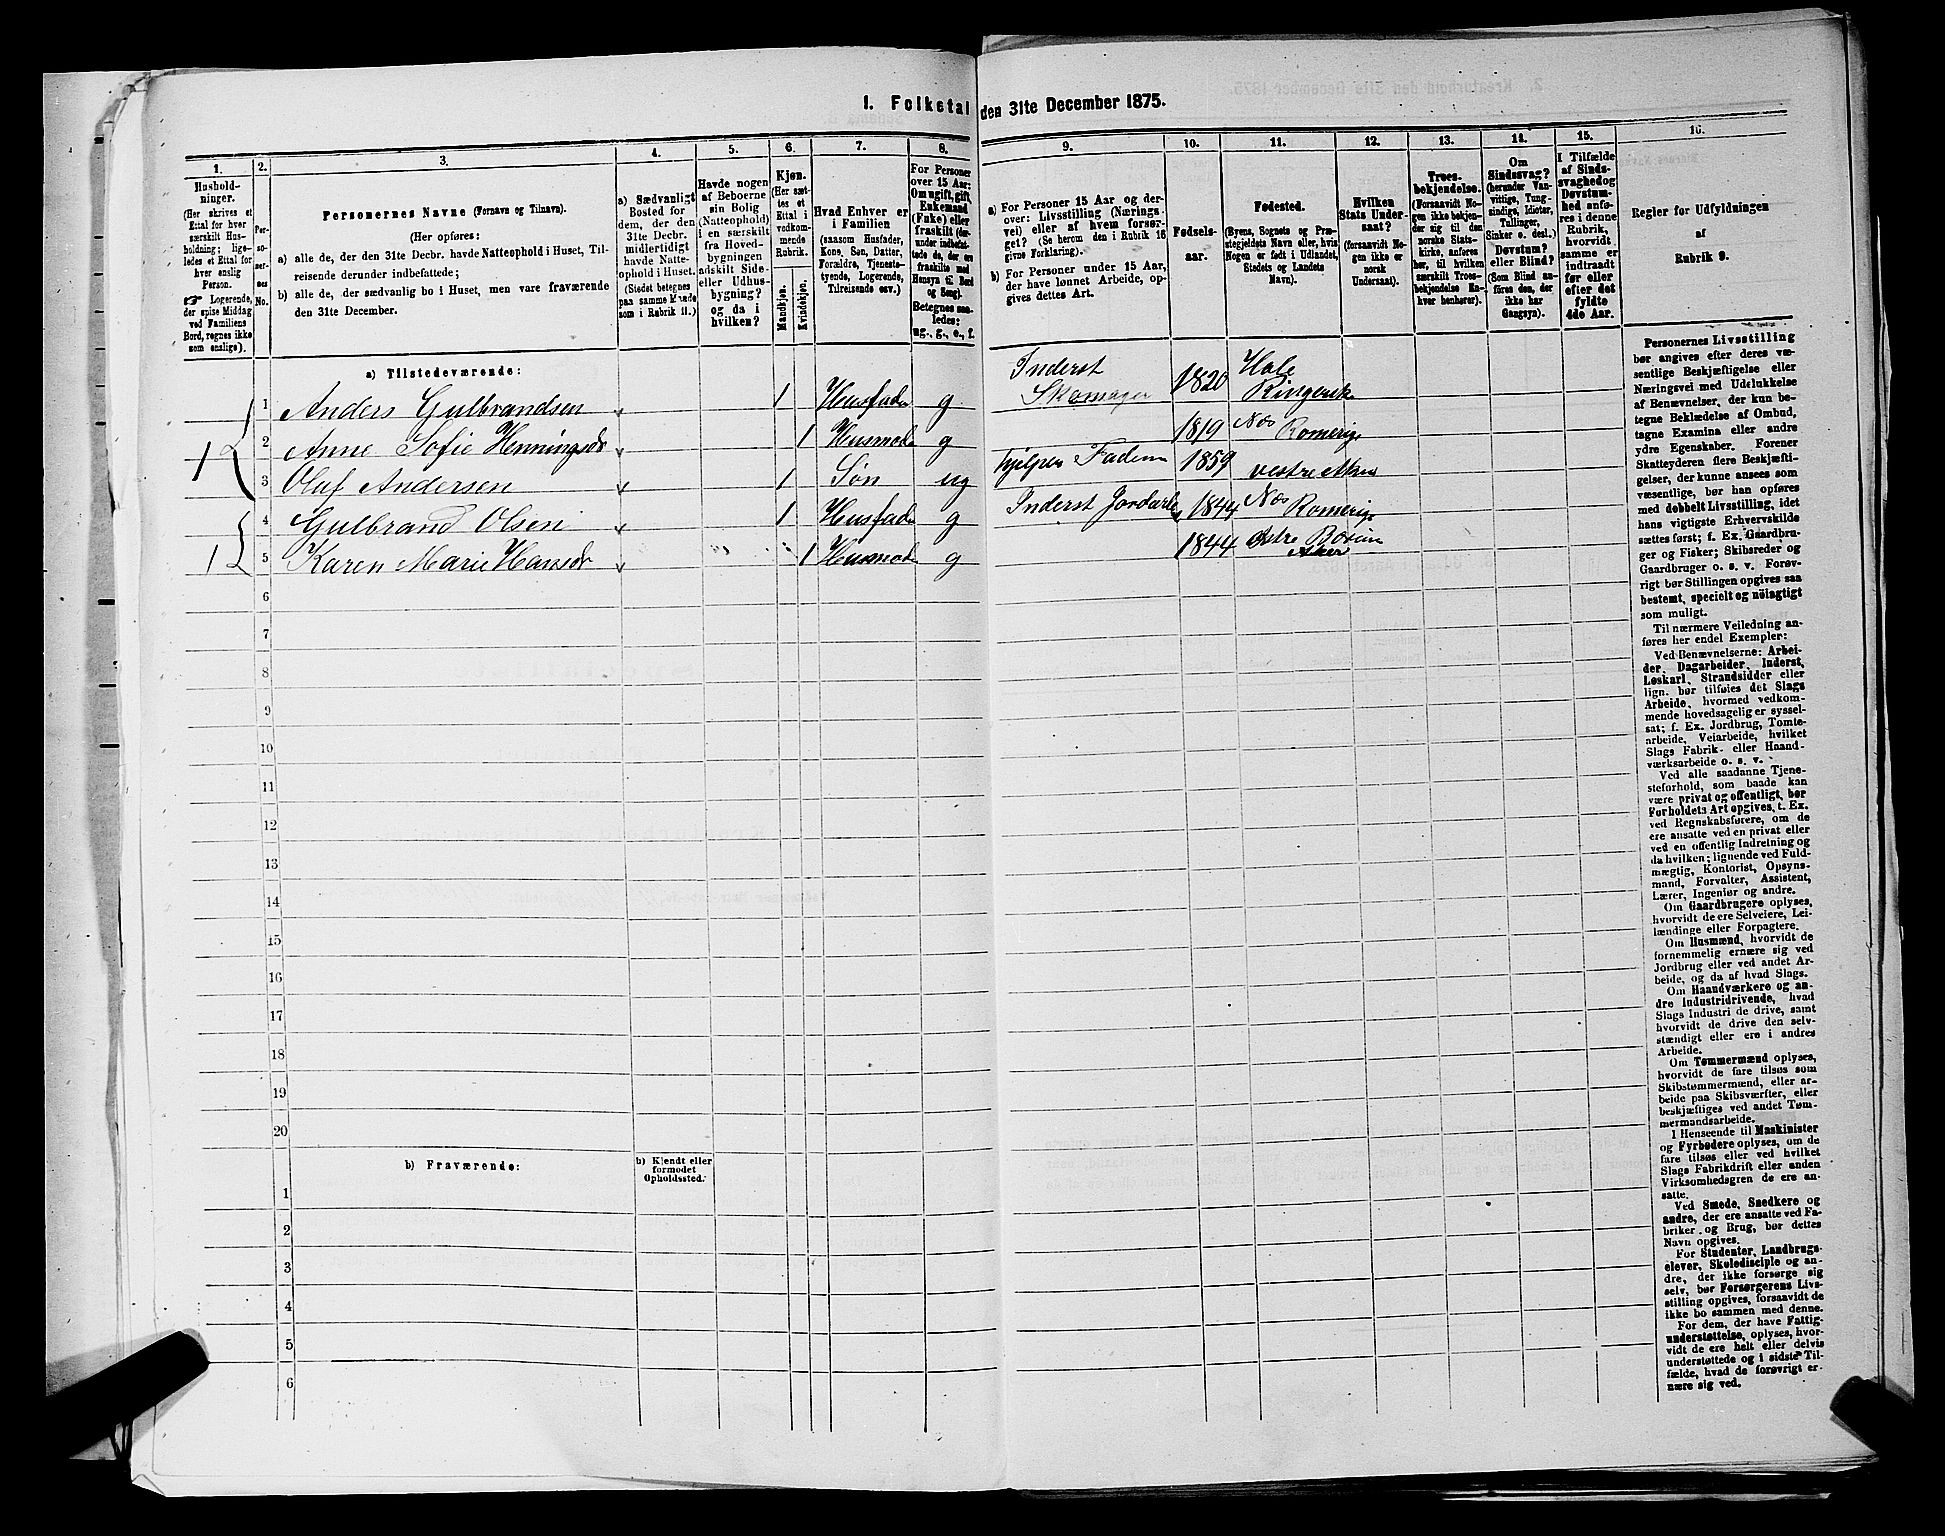 1. Folketal den 31te December 1875.
1.
Hushold-
ninger.
(Her skrives et
Ettal for hver
særskilt Hus-
holdning; lige-
ledes et Ettal for
hver enslig
Person.
☞ Logerende,
der spise Middag
ved Familiens
Bord, regnes ikke
som enslige).
2.
Per-
so-
ner-
nes
No.
3.
Personernes Navne (Fornavn og Tilnavn).
(Her opføres:
a) alle de, der den 31te Decbr. havde Natteophold i Huset, Til-
reisende derunder indbefattede;
b) alle de, der sædvanlig bo i Huset, men vare fraværende
den 31te December.
4.
a) Sædvanligt
Bosted for
dem, der den
31te Decbr.
midlertidigt
havde Natte-
ophold i Huset.
(Stedet betegnes
paa samme Maade
som i Rubrik 11.)
5.
Havde nogen
af Beboerne
sin Bolig
(Natteophold)
i en særskilt
fra Hoved-
bygningen
adskilt Side-
eller Udhus-
bygning?
og da i
hvilken?
6.
Kjøn.
(Her sæt-
tes et
Ettal i
vedkom-
mende
Rubrik.
Mandkjøn.
Kvindekjøn.
7.
Hvad Enhver er
i Familien
(saasom Husfader,
Kone, Søn, Datter,
Forældre, Tjeneste-
tyende, Logerende,
Tilreisende osv.)
8.
For Personer
over 15 Aar:
Om ugift, gift,
Enkemand
(Enke) eller
fraskilt (der-
under indbefat-
tede de, der ere
fraskilte med
Hensyn til Bord
og Seng).
Betegnes saa-
ledes:
ug., g., e., f.
9.
a) For Personer 15 Aar og der-
over: Livsstilling (Nærings-
vei) eller af hvem forsør-
get? (Se herom den i Rubrik 16
givne Forklaring).
b) For Personer under 15 Aar,
der have lønnet Arbeide, op-
gives dettes Art.
10.
Fødsels-
aar.
11.
Fødested.
(Byens, Sognets og Præ-
stegjeldets Navn eller, hvis
Nogen er født i Udlandet,
Stedets og Landets
Navn).
12.
Hvilken
Stats Under-
saat?
(forsaavidt No-
gen ikke er
norsk
Undersaat).
13.
Troes-
bekjendelse.
(Forsaavidt No-
gen ikke bekjen-
der sig til den
norske Stats-
kirke, anføres
her, til hvilken
særskilt Troes-
bekjendelse En-
hver henhører).
14.
Om
Sindssvag?
(herunder Van-
vittige, Tung-
sindige, Idioter,
Tullinger,
Sinker o. desl.)
Døvstum?
eller Blind?
(Som Blind an-
føres den, der
ikke har
Gangsyn).
15.
I Tilfælde
af Sinds-
svaghed og
Døvstum-
hed anfø-
res i denne
Rubrik,
hvorvidt
samme er
indtraadt
før eller
efter det
fyldte
4de Aar.
16.
Regler for Udfyldningen
af
Rubrik 9.
a) Tilstedeværende:
1 1 Anders Gulbrandsen 1 Husfader g Inderst Skomager 1820 Hole Ringerike
2 Anne Sofie Henningsdr 1 Husmoder g 1819 Næs Romerige
3 Olaf Andersen 1 Søn ug hjelper Faderen 1859 vestre Aker
1 4 Gulbrand Olsen 1 Husfader g Inderst Jordarb. 1844 Næs Romerige
5 Karen Marie Hansdr 1 Husmoder g 1844 Østre Bærum Aker
6
7
8
9
10
11
12
13
14
15
16
17
18
19
20
b) Fraværende:
b) Kjendt eller
formodet
Opholdssted.
1
2
3
4
5
6
Personernes Livsstilling
bør angives efter deres væ-
sentlige Beskjæftigelse eller
Næringsvei med Udelukkelse
af Benævnelser, der kun be-
tegne Beklædelse af Ombud,
tagne Examina eller andre
ydre Egenskaber. Forener
Skatteyderen flere Beskjæfti-
gelser, der kunne ansees som
væsentlige, bør han opføres
med dobbelt Livsstilling, idet
hans vigtigste Erhvervskilde
sættes først; f. Ex. Gaardbru-
ger og Fisker; Skibsreder og
Gaardbruger o. s. v. Forøv-
rigt bør Stillingen opgives saa
bestemt, specielt og nøiagtigt
som muligt.
Til nærmere Veiledning an-
føres her endel Exempler:
Ved Benævnelserne: Arbei-
der, Dagarbeider, Inderst,
Løskarl, Strandsidder eller
lign. bør tilføies det Slags
Arbeide, hvormed vedkom-
mende hovedsagelig er syssel-
sat; f. Ex. Jordbrug, Tomte-
arbeide, Veiarbeide, hvilket
Slags Fabrik- eller Haand-
værksarbeide o. s. v.
Ved alle saadanne Tjene-
steforhold, som baade kan
være privat og offentligt, bør
Forholdets Art opgives, t. Ex.
ved Regnskabsførere, om de
ere ansatte ved en privat eller
ved en offentlig Indretning og
da hvilken; lignende ved Fuld-
mægtig, Kontorist, Opsyns-
mand, Forvalter, Assistent,
Lærer, Ingeniør og andre.
Om Gaardbrugere oplyses,
hvorvidt de ere Selveiere, Lei-
lændinge eller Forpagtere.
Om Husmænd, hvorvidt de
fornemmelig ernære sig ved
Jordbrug eller ved andet Ar-
beide, og da af hvad Slags.
Om Haandværkere og an-
dre Industridrivende, hvad
Slags Industri de drive, samt
hvorvidt de drive den selv-
stændigt eller ere i andres
Arbeide.
Om Tømmermænd oplyses,
hvorvidt de fare tilsøs som
Skibstømmermænd, eller ar-
beide paa Skibsværfter, eller
beskjæftiges ved andet Tøm-
mermandsarbeide.
I Henseende til Maskinister
og Fyrbødere oplyses, om de
fare tilsøs eller ved hvilket
Slags Fabrikdrift eller anden
Virksomhedsgren de ere an-
satte.
Ved Smede, Snedkere og
andre, der ere ansatte ved Fa-
briker og Brug, bør dettes
Navn opgives.
For Studenter, Landbrugs-
elever, Skoledisciple og an-
dre, der ikke forsørge sig
selv, bør Forsørgerens Livs-
stilling opgives, forsaavidt de
ikke bo sammen med denne.
For dem, der have Fattig-
understøttelse, oplyses, hvor-
vidt de ere helt eller delvis
understøttede og i sidste Til-
fælde, hvad de forøvrigt er-
nære sig ved.